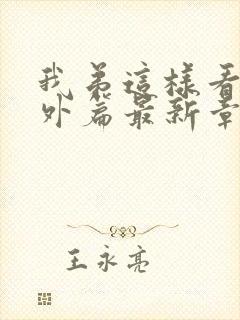 我弟這樣看
外篇最新章
王永亮